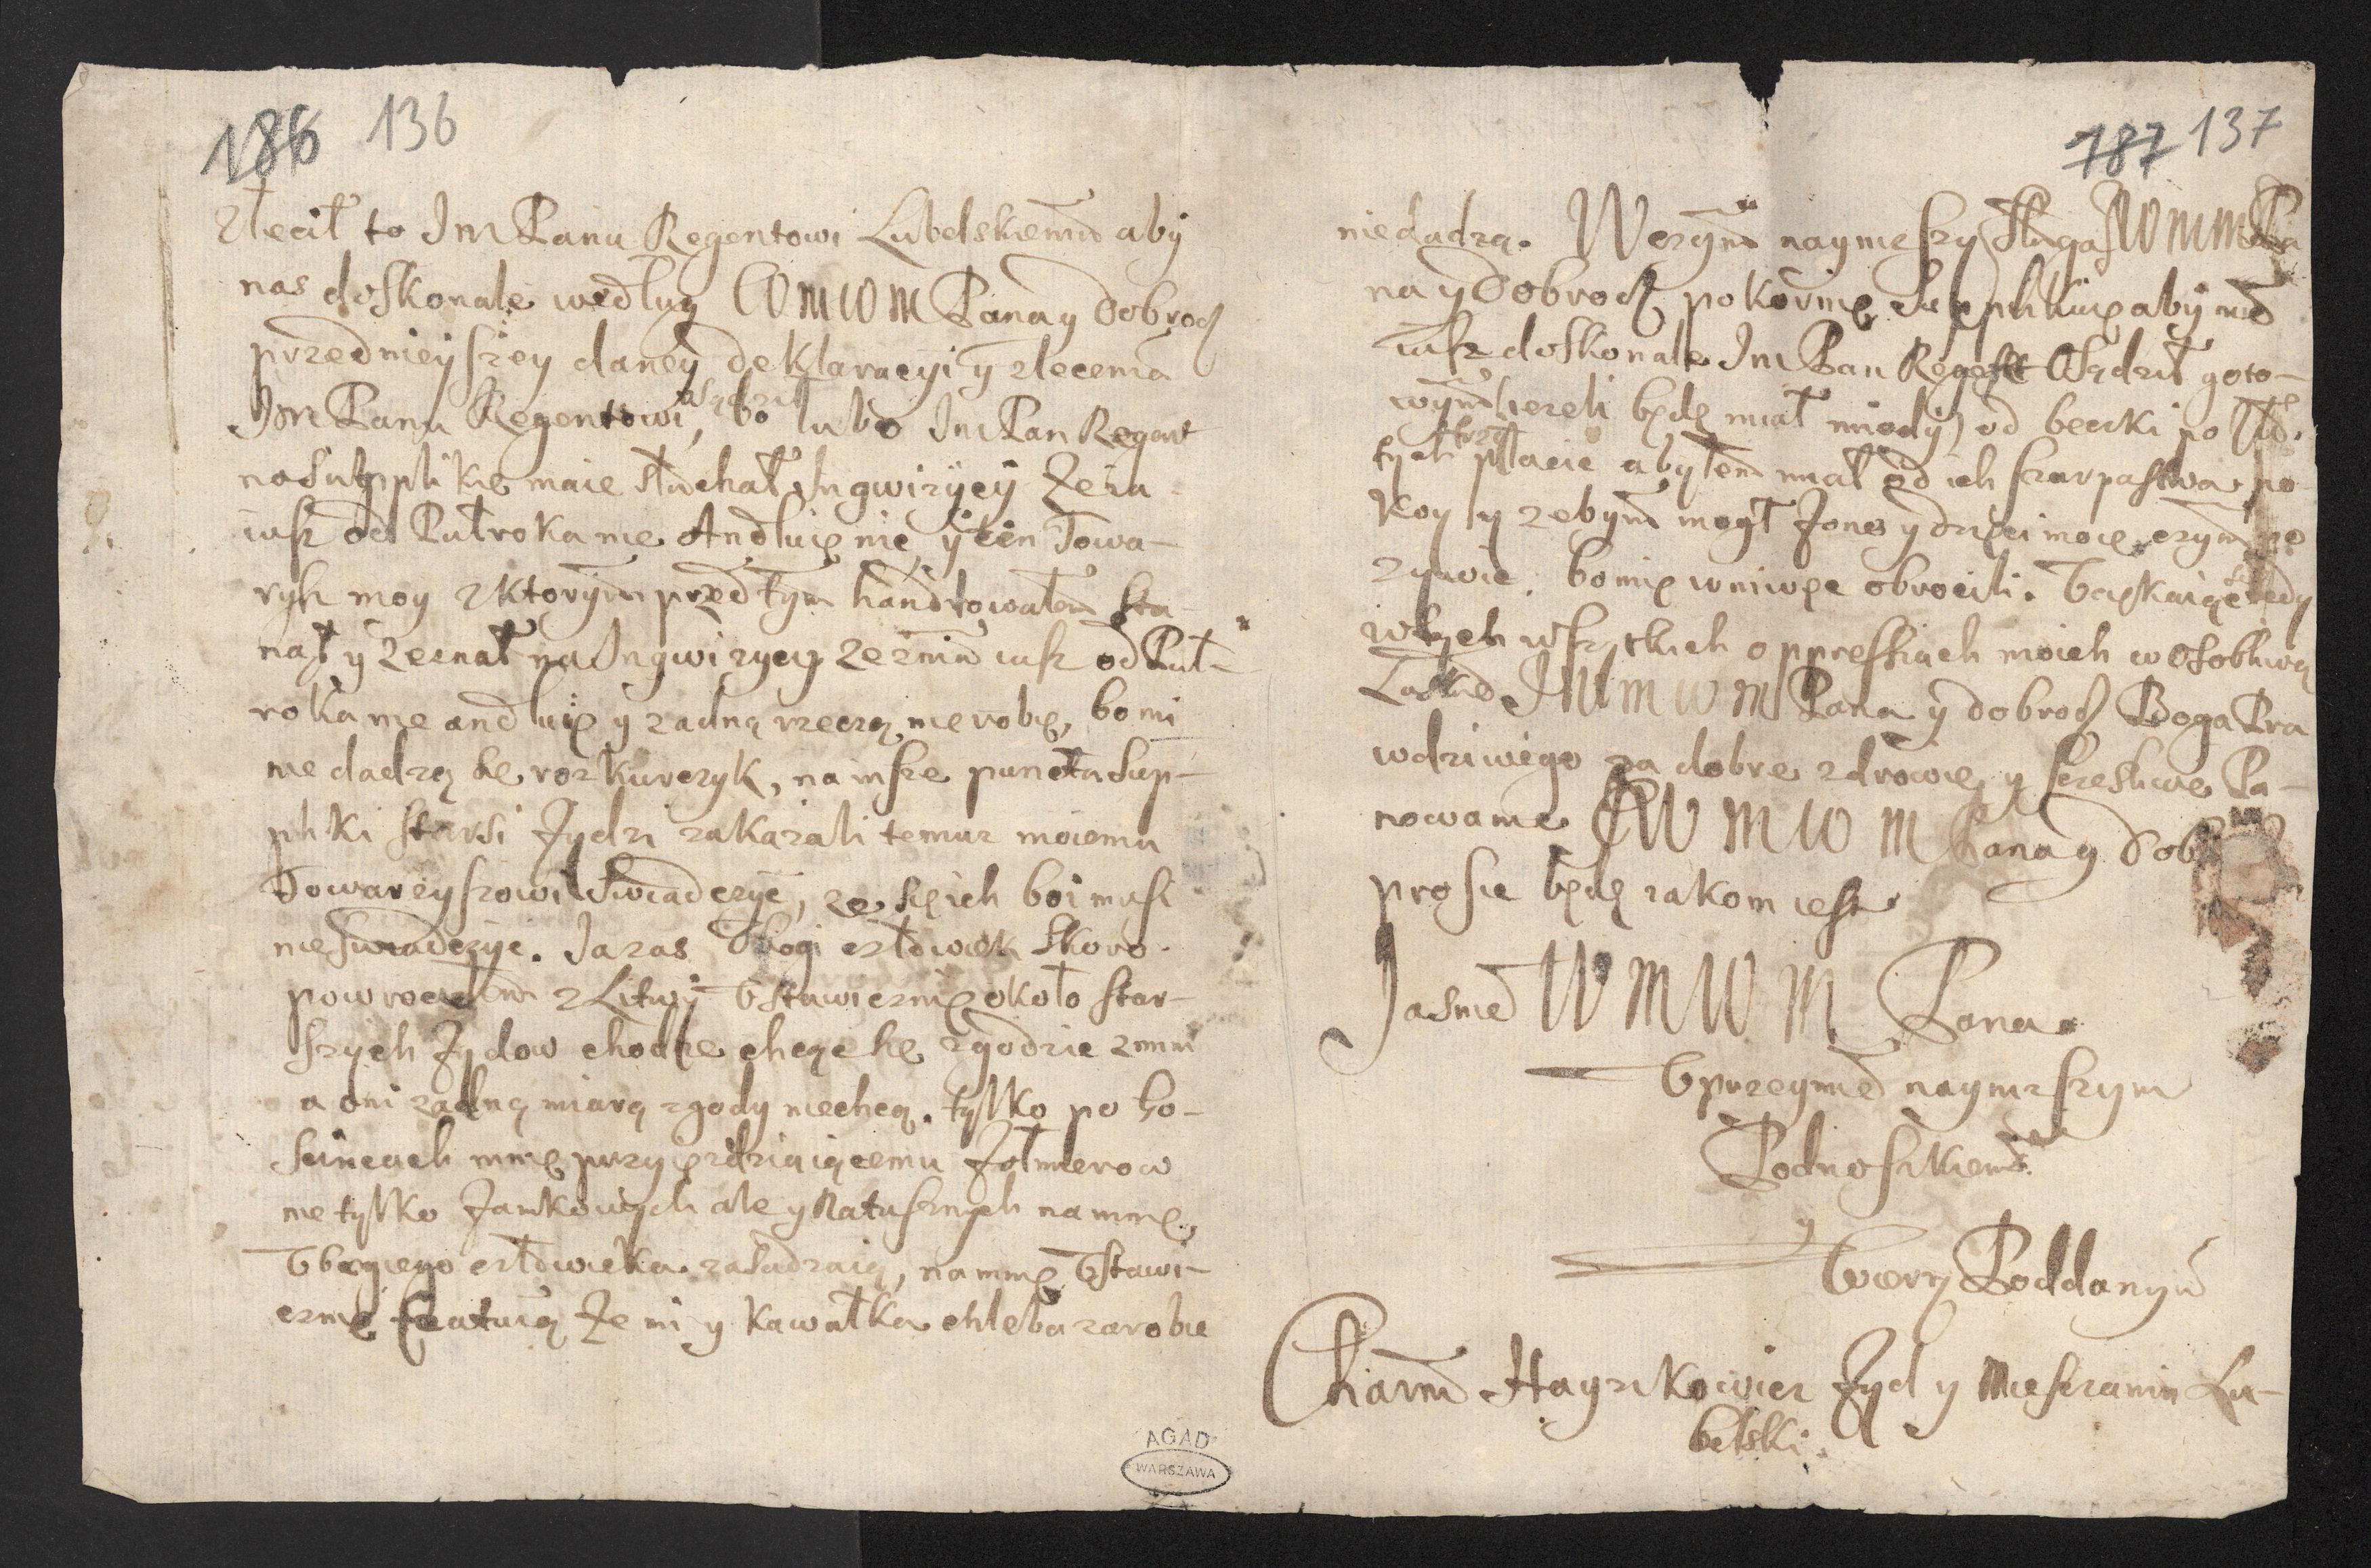 186 136
zlecił to Im Panu Regentowi Lubelskiemu aby
nas doskonale według WMWM Pana y Dobrodz
przednieyszey daney deklaracyi y zlecenia
Im Panu Regentowi, osądził bo lubo Im Pan Regent
na Supplikię maie słuchał Ingwizycy że ia
iusz od Puł roka nie Andluię nie y ten Towa-
rysz moy z ktorym przed tym handlowałem sta-
nął y zeznał na Ingwizycyi ze znim iusz od Puł-
roka nie andluię y zadną rzeczą nie robię, bo mi
nie dadzą się rozkurczyk, na insze puncta Sup-
pliki starsi Żydzi zakazali temuz moiemu
Towarzyszowi swiadczyć, ze się ich boi musi
nie swiadczyc. Ja zas Ubogi człowiek skoro
powrociłem z Litwy Ustawicznię około star-
szych Żydow chodzę chcąc się zgodzic znimi
a oni zadną miarą zgody niechcą. tylko po Go-
scincach mnię przyiezdziaiącemu Żołnierow
nie tylko Zamkowych ale y Ratusznych na mnię
Ubogiego człowieka zasadzaią, na mnię Ustawi-
cznię czatuią że mi y kawałka chleba zarobic
187 137
niedadzą. W czym naynieszy Sługa WMM Pa
na y Dobrodz pokornię Supplikuię aby nas
iusz doskonale Im Pan Regent Osądził goto-
wym iezeli będę miał miody od beczki po Zło.
tych trzy płacic abyłem miał od ich szarpastwa po-
koy y zebym mogł Żonę y dzieci moie czym po
zywic. bo mię wniwęc obrocili. Uciskaiąc tedy
w tych wszytkich oppressiach moich w osobliwą
Łaskę WMWM Pana y dobrodz Boga Pra
wdziwego za dobre zdrowie y sczesliwe Pa-
nowanie WMWM Pana y Dob
prosic będę iakom iest
Jasnie WMWM Pana
Uprzeymie naynizszym
Podnoszkiem
y
Wiery Poddanym
Chaim Hayzikowicz Żyd y Miesczanin Lu-
belski.
AGAD
WARSZAWA